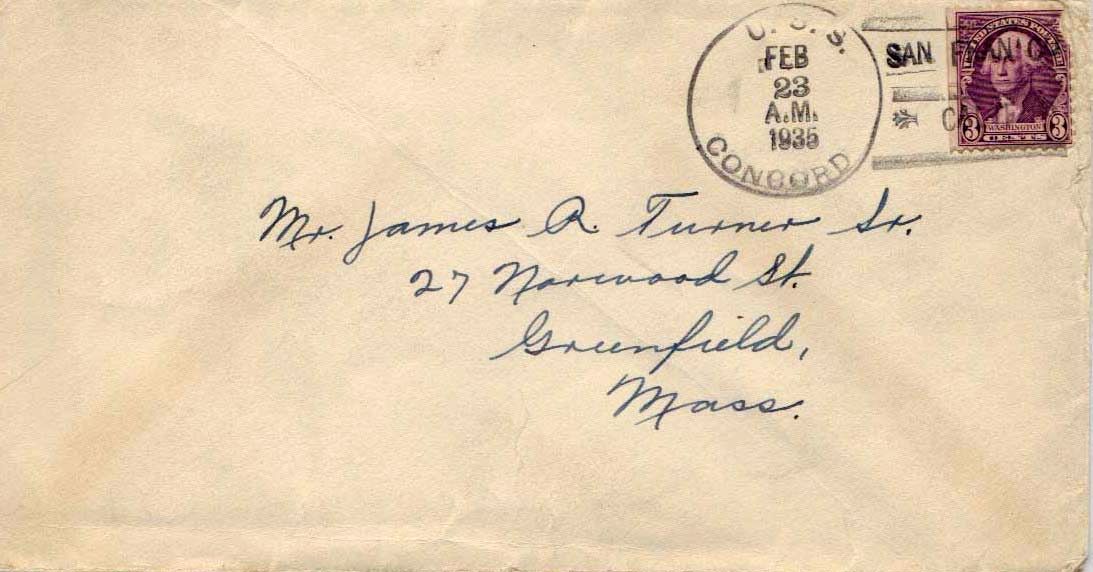 U.S.S.
FEB
23
A.M.
1935
CONCORD
SAN
UNITED STATES POSTAGE
3 WASHINGTON 3
CENTS
Mr. James R. Turner Sr.
27 Norwood St.
Greenfield,
Mass.